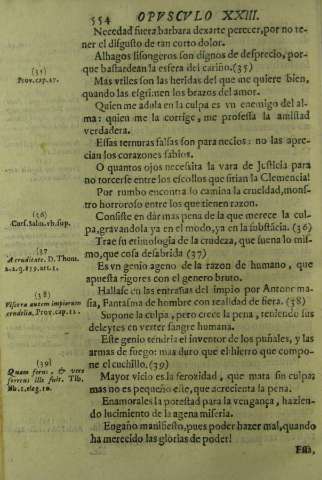 554 OPVSCVLO XXIII.
Necedad fuera barbara dexarte perecer, por no te-
ner el disgusto de tan corto dolor.
Alhagos lisongeros son dignos de desprecio, por-
que bastardean la esfera del cariño. (35)
(35)
Prov. cap. 27.
Mas vtiles son las heridas del que me quiere bien,
quando las esgrimen los brazos del amor.
Quien me adula en la culpa es vn enemigo del al-
ma: quien me la corrige, me professa la amistad
verdadera.
Essas ternuras falsas son para necios: no las apre-
cian los corazones sabios.
O quantos ojos necessita la vara de Justicia para
no torcerse entre los escollos que sitian la Clemencia!
Por rumbo encontrado camina la crueldad, mons-
tro horroroso entre los que tienen razon.
(36)
Consiste en dar mas pena de la que merece la cul-
pa, gravandola ya en el modo, ya en la substácia. (36)
(37)
A cruditate. D. Thom.
2.2. q. 159. art. 1.
Trae su etimologia de la crudeza, que suena lo mis-
mo, que cosa desabrida (37)
Es vn genio ageno de la razon de humano, que
apuesta rigores con el genero bruto.
(38)
Viscera autem impiorum
crudelia. Prov. cap. 12.
Hallasse en las entrañas del impio por Antonoma-
sia, Fantasma de hombre con realidad de fiera. (38)
Supone la culpa, pero crece la pena, teniendo sus
deleytes en verter sangre humana.
Este genio tendria el inventor de los puñales, y las
armas de fuego: mas duro que el hierro que compo-
ne el cuchillo. (39)
(39)
Quam ferus, & vere
ferreus ille fuit. Tib.
lib. 1. eleg. 10.
Mayor vicio es la ferozidad, que mata sin culpa;
mas no es pequeño este, que acrecienta la pena.
Enamorales la potestad para la vengança, hazien-
do lucimiento de la agena miseria.
Engaño manifiesto, pues poder hazer mal, quando
ha merecido las glorias de poder!
Essa,